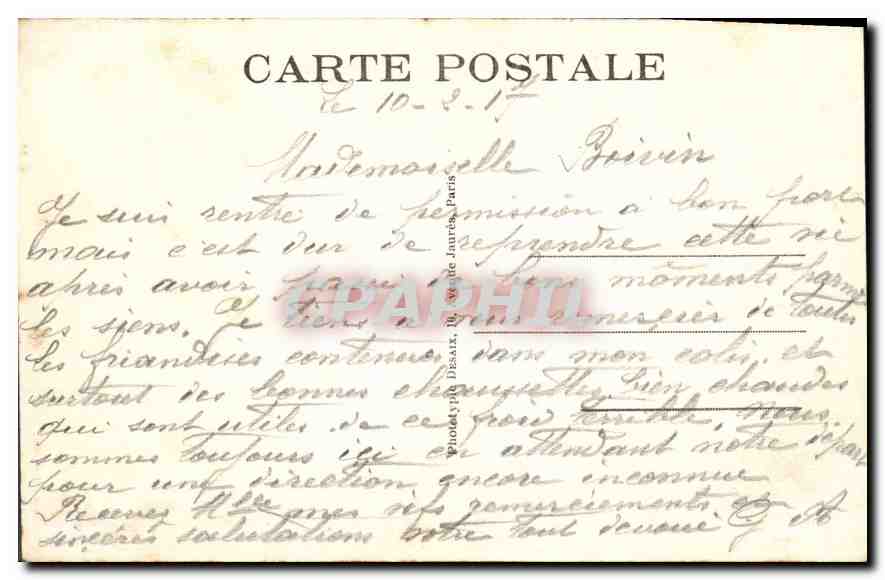 CARTE POSTALE
Le 10-2-17
Mademoiselle Boivin
Je suis rentré de permission a bon port
mais c'est dur de reprendre cette vie
après avoir passé de bons moments parmi
les siens. Je tiens a vous remercier de toutes
les friandises contenues dans mon colis. et
surtout des bonnes chaussettes bien chaudes
qui sont utiles de ce froid terrible. Nous
sommes toujours ici en attendant notre départ
pour une direction encore inconnue
Recevez Melle mes vifs remerciements et
sincères salutations votre tout dévoué G A
Phototypie DESAIX, 18, rue de Jaurès, Paris
CPAPHIL